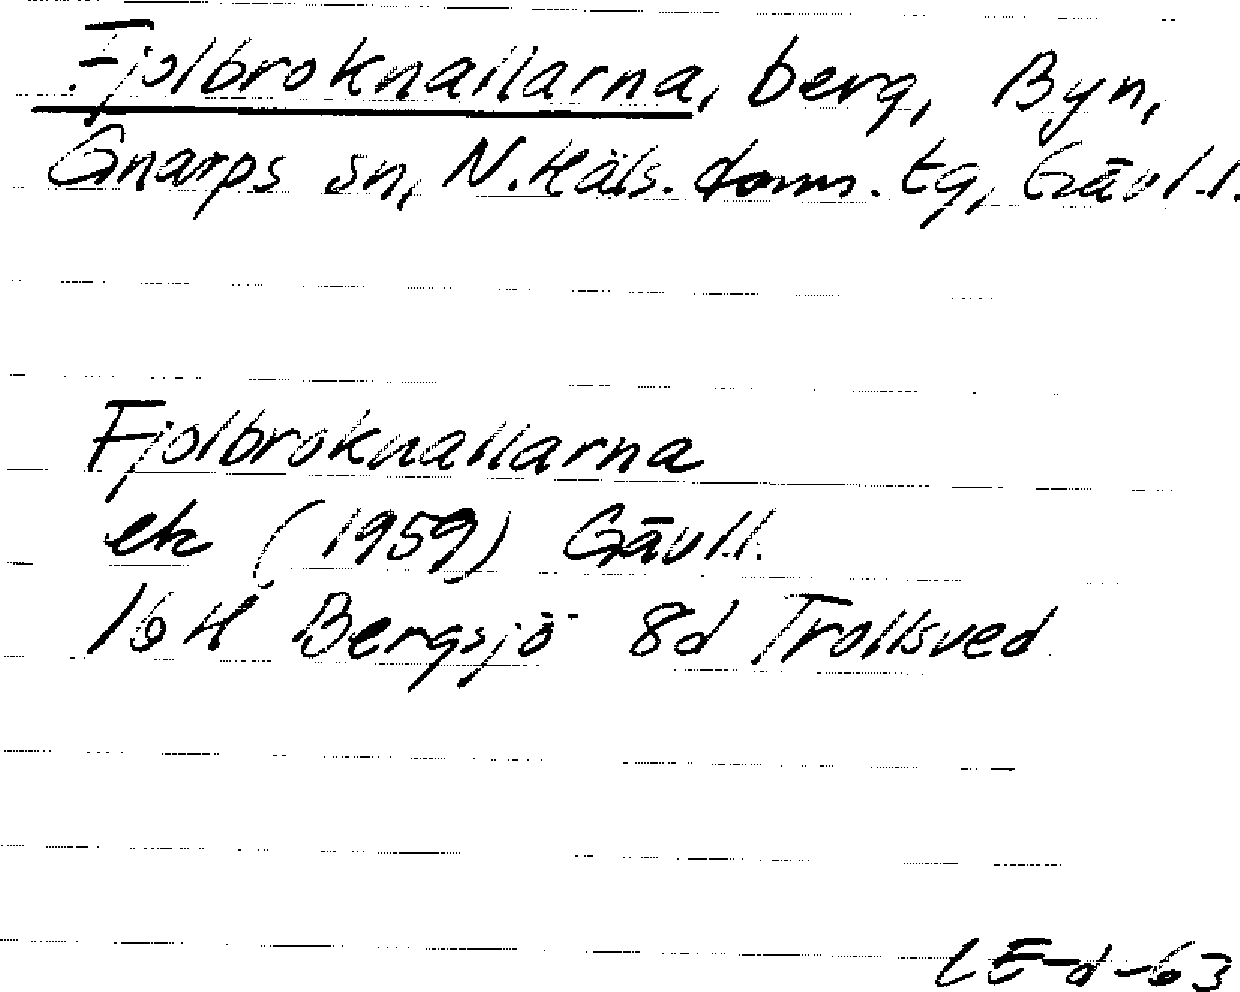 Fjolbroknallarna, berg, Byn,
Gnarps sn, N. Häls. doms. tg, Gävl.l.
Fjolbroknallarna
ek (1959) Gävl.l.
16H Bergsjö 8d Trollsved
LE-d-63